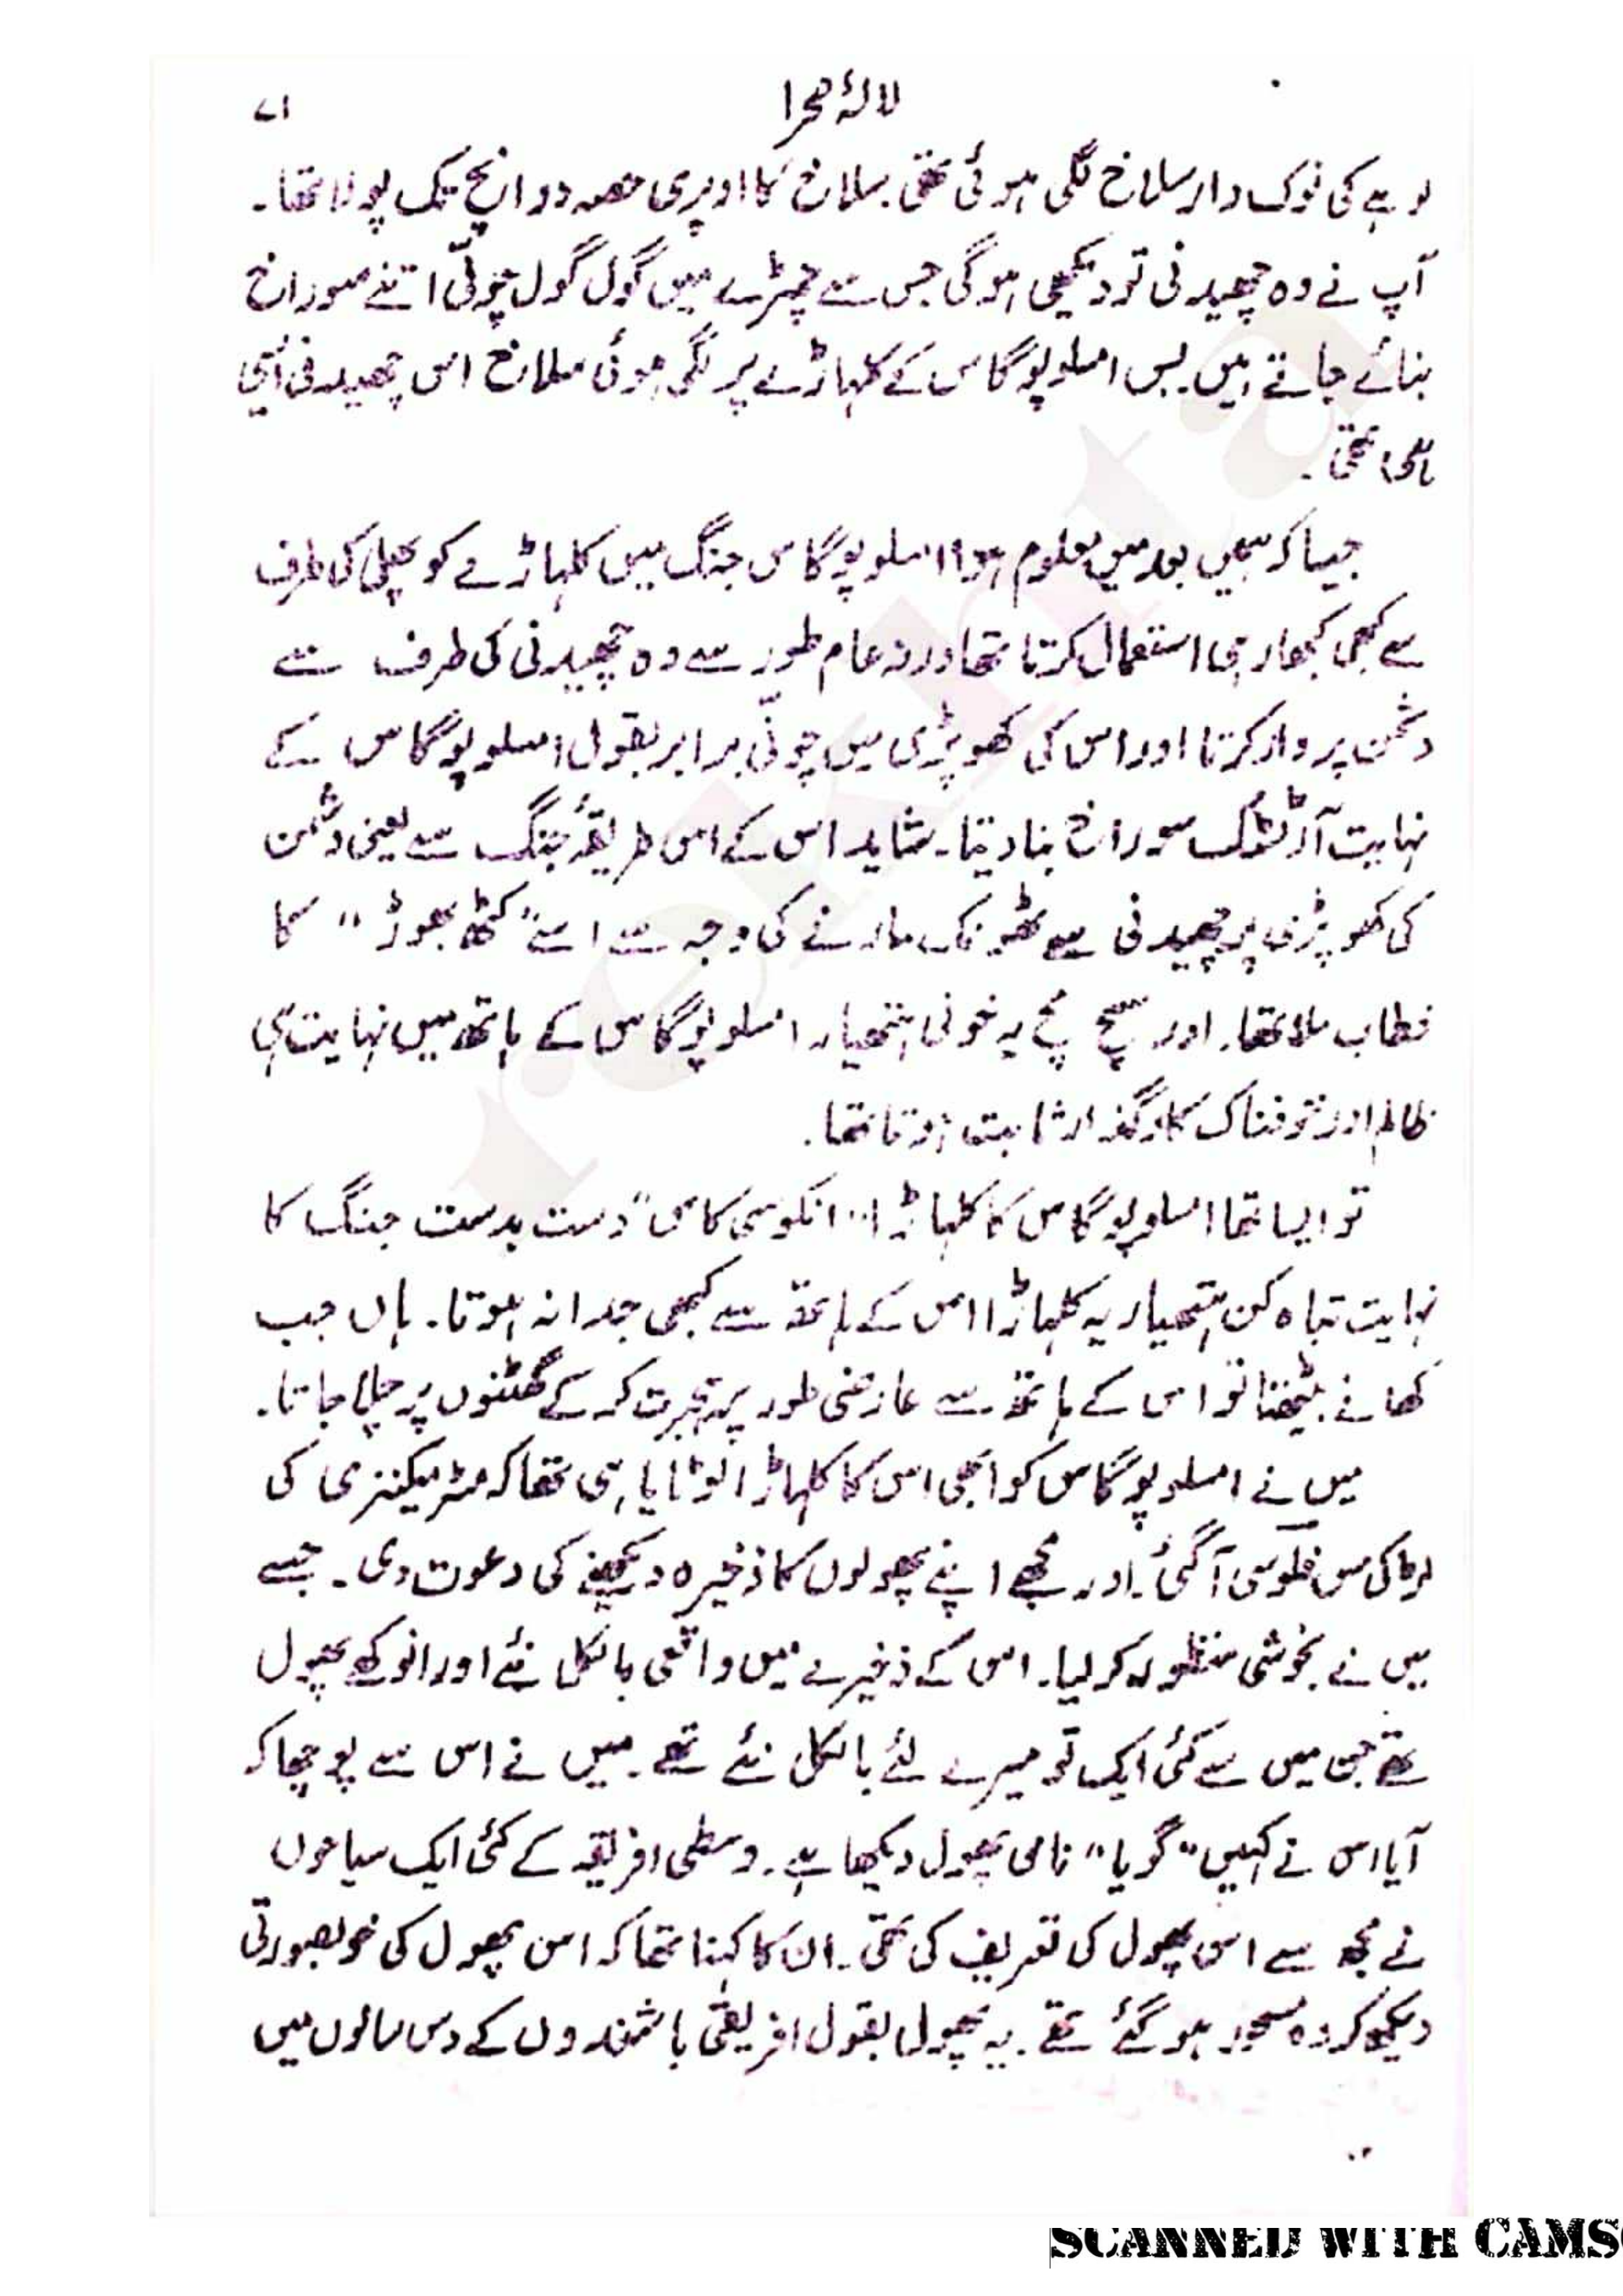 لالۂ صحرا
۷۱
لوہے کی نوک دار سلاخ لگی ہوئی تھی۔ سلاخ کا اوپری حصہ دو انچ تک پولا تھا۔
آپ نے وہ چھیدنی تو دیکھی ہوگی جس سے چمڑے میں گول گول چونّی اتنے سوراخ
بنائے جاتے ہیں۔ بس امسلوپوگاس کے کلہاڑے پر لگی ہوئی سلاخ اس چھیدنی ایسی
ہی تھی۔
جیسا کہ ہمیں بعد میں معلوم ہوا امسلوپوگاس جنگ میں کلہاڑے کو پھل کی طرف
سے کبھی کبھار ہی استعمال کرتا تھا ورنہ عام طور سے وہ چھیدنی کی طرف سے
دشمن پر وار کرتا اور اس کی کھوپڑی میں چونّی برابر بقول امسلوپوگاس کے
نہایت آرٹسٹک سوراخ بنا دیتا۔ شاید اس کے اس طریقۂ جنگ سے یعنی دشمن
کی کھوپڑی پر چھیدنی سے ٹھونک مارنے کی وجہ سے اسے "کٹھ پھوڑ" کا
خطاب ملا تھا۔ اور سچ مچ یہ خونی ہتھیار امسلوپوگاس کے ہاتھ میں نہایت ہی
ظالم اور خوفناک کارگذار ثابت ہوتا تھا۔
تو ایسا تھا امسلوپوگاس کا کلہاڑا۔۔ انکوسی کاس" دست بدست جنگ کا
نہایت تباہ کن ہتھیار یہ کلہاڑا اس کے ہاتھ سے کبھی جدا نہ ہوتا۔ ہاں جب
کھانے بیٹھتا تو اس کے ہاتھ سے عارضی طور پر ہجرت کر کے گھٹنوں پر چلا جاتا۔
میں نے امسلوپوگاس کو ابھی اس کا کلہاڑا لوٹایا ہی تھا کہ مسٹر میکنزی کی
لڑکی مس فلوسی آگئی۔ اور مجھے اپنے پھولوں کا ذخیرہ دیکھنے کی دعوت دی۔ جسے
میں نے بخوشی منظور کر لیا۔ اس کے ذخیرے میں واقعی بالکل نئے اور انوکھے پھول
تھے جن میں سے کئی ایک تو میرے لئے بالکل نئے تھے۔ میں نے اس سے پوچھا کہ
آیا اس نے کہیں "گویا" نامی پھول دیکھا ہے۔ وسطی افریقہ کے کئی ایک سیاحوں
نے مجھ سے اس پھول کی تعریف کی تھی۔ ان کا کہنا تھا کہ اس پھول کی خوبصورتی
دیکھ کر وہ مسحور ہو گئے تھے۔ یہ پھول بقول افریقی باشندوں کے دس سالوں میں
SCANNED WITH CAMS